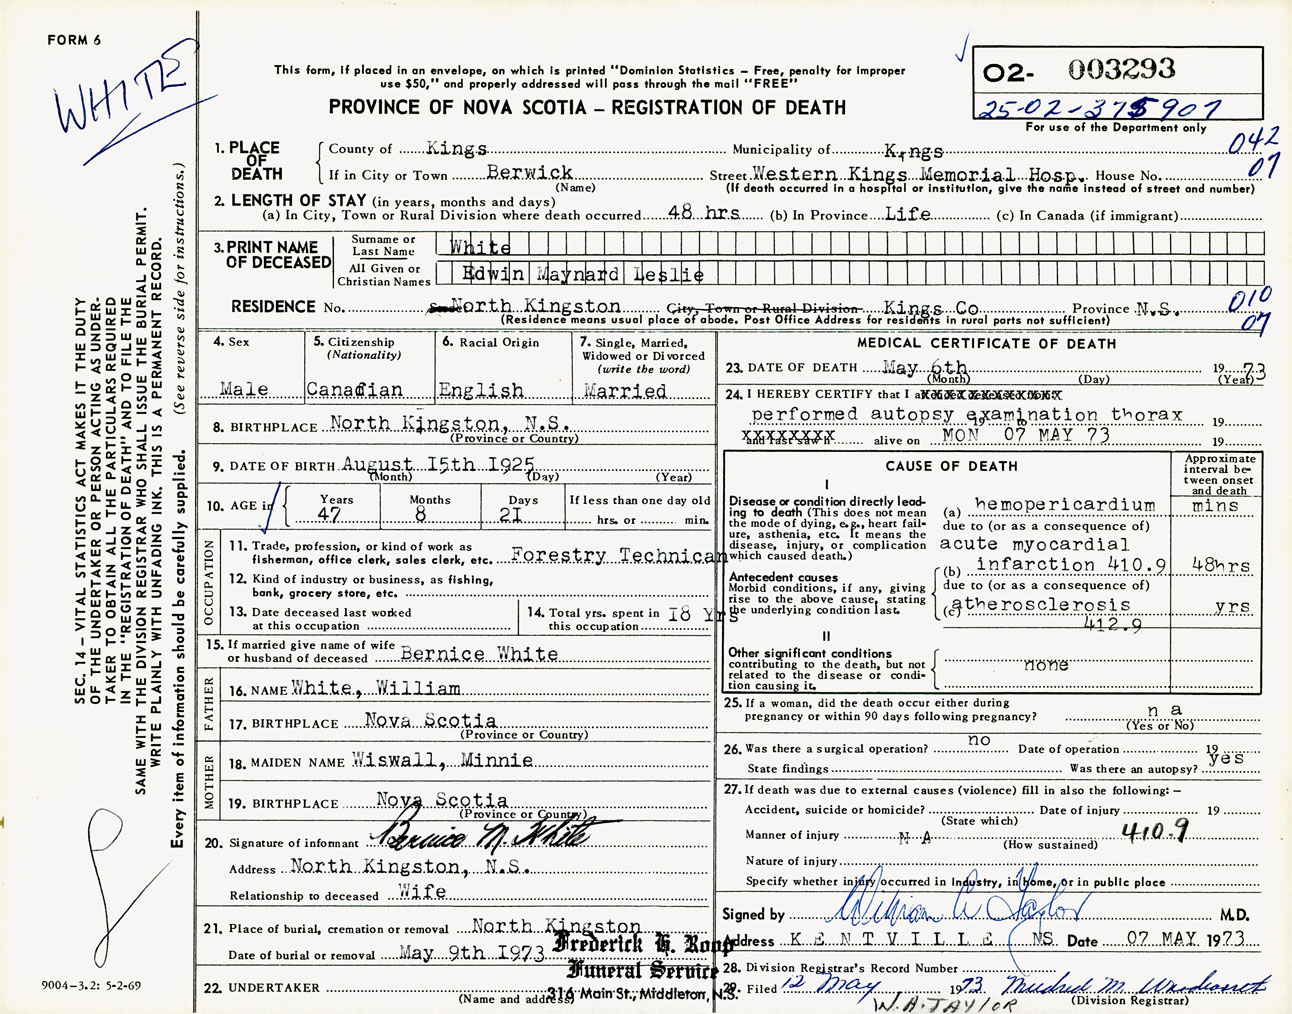 FORM 6
WHITE
This form, if placed in an envelope, on which is printed "Dominion Statistics – Free, penalty for improper
use $50," and properly addressed will pass through the mail "FREE"
PROVINCE OF NOVA SCOTIA – REGISTRATION OF DEATH
02- 003293
25-02-375907
For use of the Department only
SEC. 14 – VITAL STATISTICS ACT MAKES IT THE DUTY
OF THE UNDERTAKER OR PERSON ACTING AS UNDER-
TAKER TO OBTAIN ALL THE PARTICULARS REQUIRED
IN THE "REGISTRATION OF DEATH" AND TO FILE THE
SAME WITH THE DIVISION REGISTRAR WHO SHALL ISSUE THE BURIAL PERMIT.
WRITE PLAINLY WITH UNFADING INK. THIS IS A PERMANENT RECORD.
Every item of information should be carefully supplied. (See reverse side for instructions.)
1. PLACE OF DEATH
County of Kings Municipality of Kings 042
If in City or Town Berwick Street Western Kings Memorial Hosp. House No. 07
(Name) (If death occurred in a hospital or institution, give the name instead of street and number)
2. LENGTH OF STAY (in years, months and days)
(a) In City, Town or Rural Division where death occurred 48 hrs (b) In Province Life (c) In Canada (if immigrant)
3. PRINT NAME OF DECEASED
Surname or Last Name White
All Given or Christian Names Edwin Maynard Leslie
RESIDENCE No. North Kingston City, Town or Rural Division Kings Co Province N.S. 010
(Residence means usual place of abode. Post Office Address for residents in rural parts not sufficient) 07
4. Sex
Male
5. Citizenship
(Nationality)
Canadian
6. Racial Origin
English
7. Single, Married,
Widowed or Divorced
(write the word)
Married
8. BIRTHPLACE North Kingston, N.S.
(Province or Country)
9. DATE OF BIRTH August 15th 1925
(Month) (Day) (Year)
10. AGE in
Years Months Days If less than one day old
47 8 21 hrs. or min.
OCCUPATION
11. Trade, profession, or kind of work as
fisherman, office clerk, sales clerk, etc. Forestry Technican
12. Kind of industry or business, as fishing,
bank, grocery store, etc.
13. Date deceased last worked
at this occupation
14. Total yrs. spent in 18 Yrs
this occupation
15. If married give name of wife
or husband of deceased Bernice White
FATHER
16. NAME White, William
17. BIRTHPLACE Nova Scotia
(Province or Country)
MOTHER
18. MAIDEN NAME Wiswall, Minnie
19. BIRTHPLACE Nova Scotia
(Province or Country)
20. Signature of informant Bernice M. White
Address North Kingston, N.S.
Relationship to deceased Wife
21. Place of burial, cremation or removal North Kingston
Date of burial or removal May 9th 1973
22. UNDERTAKER
(Name and address)
Frederick H. Roop
Funeral Service
316 Main St., Middleton, N.S.
9004–3.2: 5-2-69
MEDICAL CERTIFICATE OF DEATH
23. DATE OF DEATH May 6th 1973
(Month) (Day) (Year)
24. I HEREBY CERTIFY that I
performed autopsy examination thorax 19
19
XXXXXXXX alive on MON 07 MAY 73 19
CAUSE OF DEATH
Approximate
interval be-
tween onset
and death
I
Disease or condition directly lead-
ing to death (This does not mean
the mode of dying, e.g., heart fail-
ure, asthenia, etc. It means the
disease, injury, or complication
which caused death.)
(a) hemopericardium mins
due to (or as a consequence of)
acute myocardial
(b) infarction 410.9 48hrs
due to (or as a consequence of)
(c) atherosclerosis yrs
412.9
Antecedent causes
Morbid conditions, if any, giving
rise to the above cause, stating
the underlying condition last.
II
Other significant conditions
contributing to the death, but not
related to the disease or condi-
tion causing it.
none
25. If a woman, did the death occur either during
pregnancy or within 90 days following pregnancy? n a
(Yes or No)
26. Was there a surgical operation? no Date of operation 19
State findings Was there an autopsy? yes
27. If death was due to external causes (violence) fill in also the following: –
Accident, suicide or homicide? Date of injury 19
(State which)
Manner of injury N A 410.9
(How sustained)
Nature of injury
Specify whether injury occurred in Industry, in Home, or in public place
Signed by William A. Taylor M.D.
Address KENTVILLE NS Date 07 MAY 1973
28. Division Registrar's Record Number
29. Filed 12 May 1973 Mildred M. Woodworth
(Division Registrar)
W.A. TAYLOR